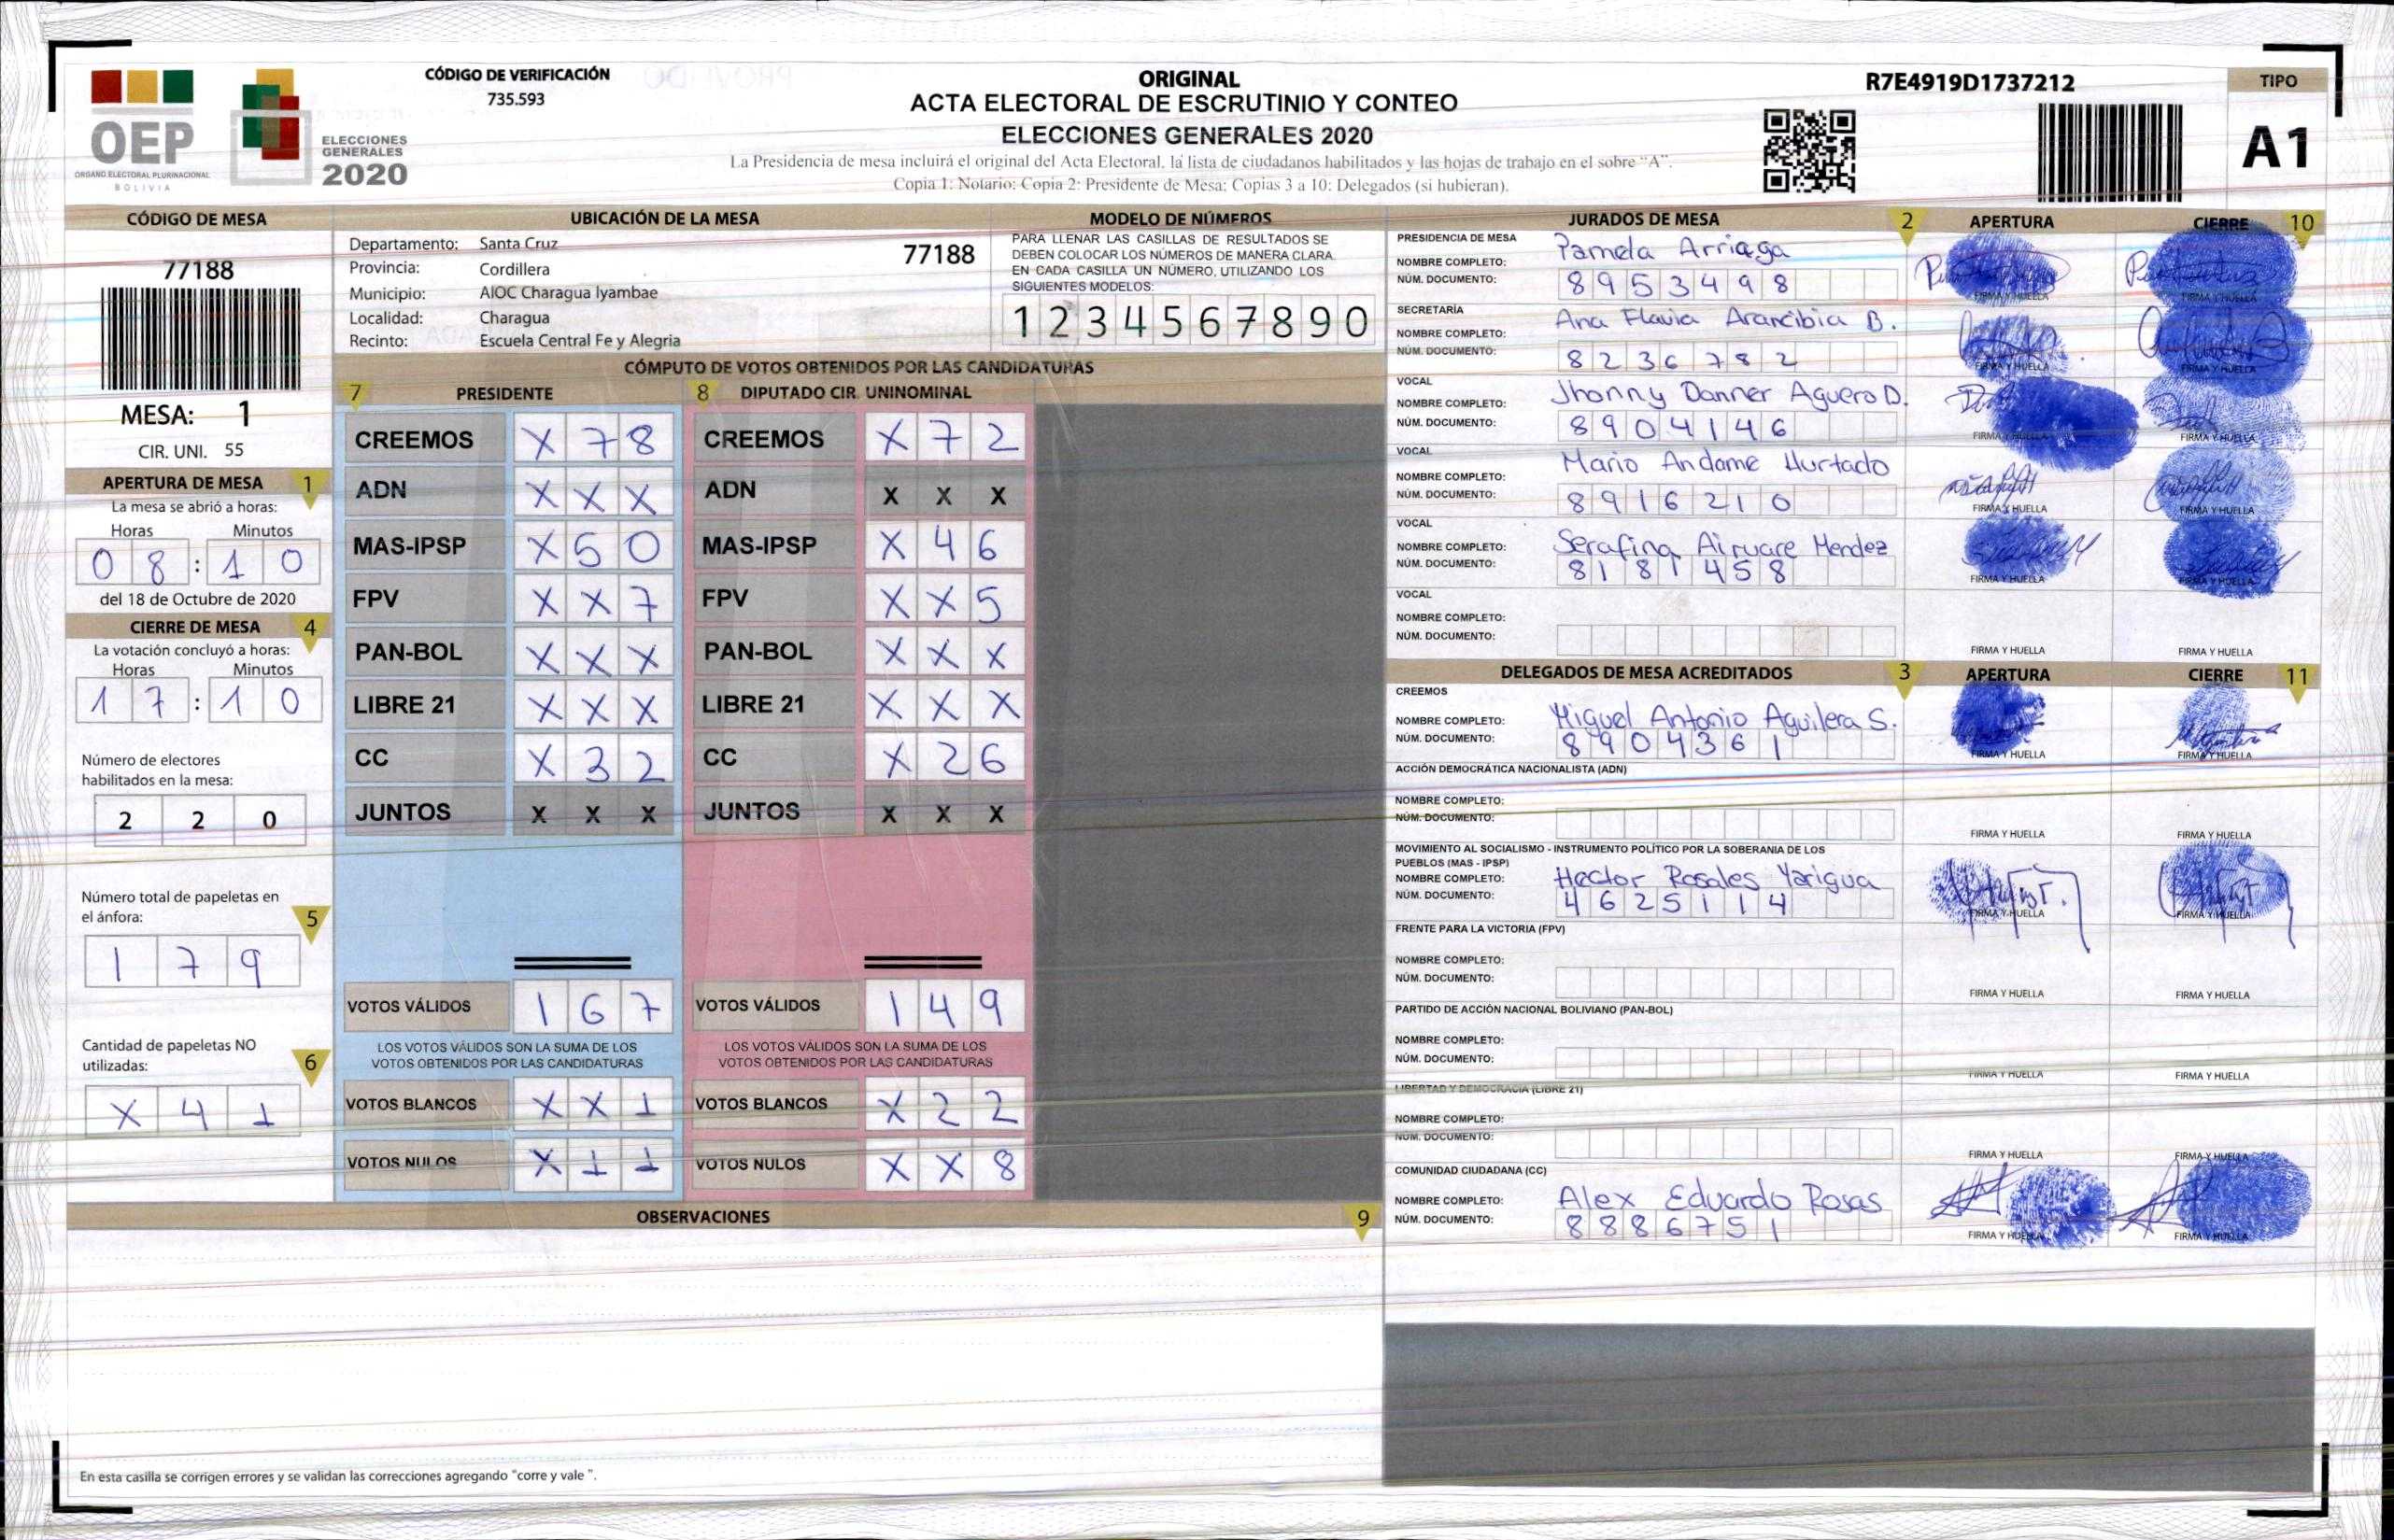 CÓDIGO DE VERIFICACIÓN
735.593
OEP
ÓRGANO ELECTORAL PLURINACIONAL
BOLIVIA
ELECCIONES
GENERALES
2020
ORIGINAL
ACTA ELECTORAL DE ESCRUTINIO Y CONTEO
ELECCIONES GENERALES 2020
La Presidencia de mesa incluirá el original del Acta Electoral, la lista de ciudadanos habilitados y las hojas de trabajo en el sobre "A".
Copia 1: Notario; Copia 2: Presidente de Mesa; Copias 3 a 10: Delegados (si hubieran).
R7E4919D1737212
TIPO
A1
CÓDIGO DE MESA
77188
MESA: 1
CIR. UNI. 55
APERTURA DE MESA 1
La mesa se abrió a horas:
Horas Minutos
08:10
del 18 de Octubre de 2020
CIERRE DE MESA 4
La votación concluyó a horas:
Horas Minutos
17:10
Número de electores
habilitados en la mesa:
2 2 0
Número total de papeletas en
el ánfora: 5
1 7 9
Cantidad de papeletas NO
utilizadas: 6
X 4 1
UBICACIÓN DE LA MESA
Departamento: Santa Cruz 77188
Provincia: Cordillera
Municipio: AIOC Charagua Iyambae
Localidad: Charagua
Recinto: Escuela Central Fe y Alegria
MODELO DE NÚMEROS
PARA LLENAR LAS CASILLAS DE RESULTADOS SE
DEBEN COLOCAR LOS NÚMEROS DE MANERA CLARA.
EN CADA CASILLA UN NÚMERO, UTILIZANDO LOS
SIGUIENTES MODELOS:
1 2 3 4 5 6 7 8 9 0
CÓMPUTO DE VOTOS OBTENIDOS POR LAS CANDIDATURAS
7 PRESIDENTE 8 DIPUTADO CIR. UNINOMINAL
CREEMOS X 7 8 CREEMOS X 7 2
ADN X X X ADN X X X
MAS-IPSP X 5 0 MAS-IPSP X 4 6
FPV X X 7 FPV X X 5
PAN-BOL X X X PAN-BOL X X X
LIBRE 21 X X X LIBRE 21 X X X
CC X 3 2 CC X 2 6
JUNTOS X X X JUNTOS X X X
VOTOS VÁLIDOS 1 6 7 VOTOS VÁLIDOS 1 4 9
LOS VOTOS VÁLIDOS SON LA SUMA DE LOS LOS VOTOS VÁLIDOS SON LA SUMA DE LOS
VOTOS OBTENIDOS POR LAS CANDIDATURAS VOTOS OBTENIDOS POR LAS CANDIDATURAS
VOTOS BLANCOS X X 1 VOTOS BLANCOS X 2 2
VOTOS NULOS X 1 1 VOTOS NULOS X X 8
OBSERVACIONES 9
En esta casilla se corrigen errores y se validan las correcciones agregando "corre y vale ".
JURADOS DE MESA 2 APERTURA CIERRE 10
PRESIDENCIA DE MESA
NOMBRE COMPLETO: Pamela Arriaga
NÚM. DOCUMENTO: 8953498
FIRMA Y HUELLA FIRMA Y HUELLA
SECRETARÍA
NOMBRE COMPLETO: Ana Flavia Arancibia B.
NÚM. DOCUMENTO: 8236782
FIRMA Y HUELLA FIRMA Y HUELLA
VOCAL
NOMBRE COMPLETO: Jhonny Danner Aguero D.
NÚM. DOCUMENTO: 8904146
FIRMA Y HUELLA FIRMA Y HUELLA
VOCAL
NOMBRE COMPLETO: Mario Andame Hurtado
NÚM. DOCUMENTO: 8916210
FIRMA Y HUELLA FIRMA Y HUELLA
VOCAL
NOMBRE COMPLETO: Serafina Airuare Mendez
NÚM. DOCUMENTO: 8181458
FIRMA Y HUELLA FIRMA Y HUELLA
VOCAL
NOMBRE COMPLETO:
NÚM. DOCUMENTO:
FIRMA Y HUELLA FIRMA Y HUELLA
DELEGADOS DE MESA ACREDITADOS 3 APERTURA CIERRE 11
CREEMOS
NOMBRE COMPLETO: Miguel Antonio Aguilera S.
NÚM. DOCUMENTO: 8904361
FIRMA Y HUELLA FIRMA Y HUELLA
ACCIÓN DEMOCRÁTICA NACIONALISTA (ADN)
NOMBRE COMPLETO:
NÚM. DOCUMENTO:
FIRMA Y HUELLA FIRMA Y HUELLA
MOVIMIENTO AL SOCIALISMO - INSTRUMENTO POLÍTICO POR LA SOBERANIA DE LOS
PUEBLOS (MAS - IPSP)
NOMBRE COMPLETO: Hector Rosales Yarigua
NÚM. DOCUMENTO: 4625114
FIRMA Y HUELLA FIRMA Y HUELLA
FRENTE PARA LA VICTORIA (FPV)
NOMBRE COMPLETO:
NÚM. DOCUMENTO:
FIRMA Y HUELLA FIRMA Y HUELLA
PARTIDO DE ACCIÓN NACIONAL BOLIVIANO (PAN-BOL)
NOMBRE COMPLETO:
NÚM. DOCUMENTO:
FIRMA Y HUELLA FIRMA Y HUELLA
LIBERTAD Y DEMOCRACIA (LIBRE 21)
NOMBRE COMPLETO:
NÚM. DOCUMENTO:
FIRMA Y HUELLA FIRMA Y HUELLA
COMUNIDAD CIUDADANA (CC)
NOMBRE COMPLETO: Alex Eduardo Rosas
NÚM. DOCUMENTO: 8886751
FIRMA Y HUELLA FIRMA Y HUELLA